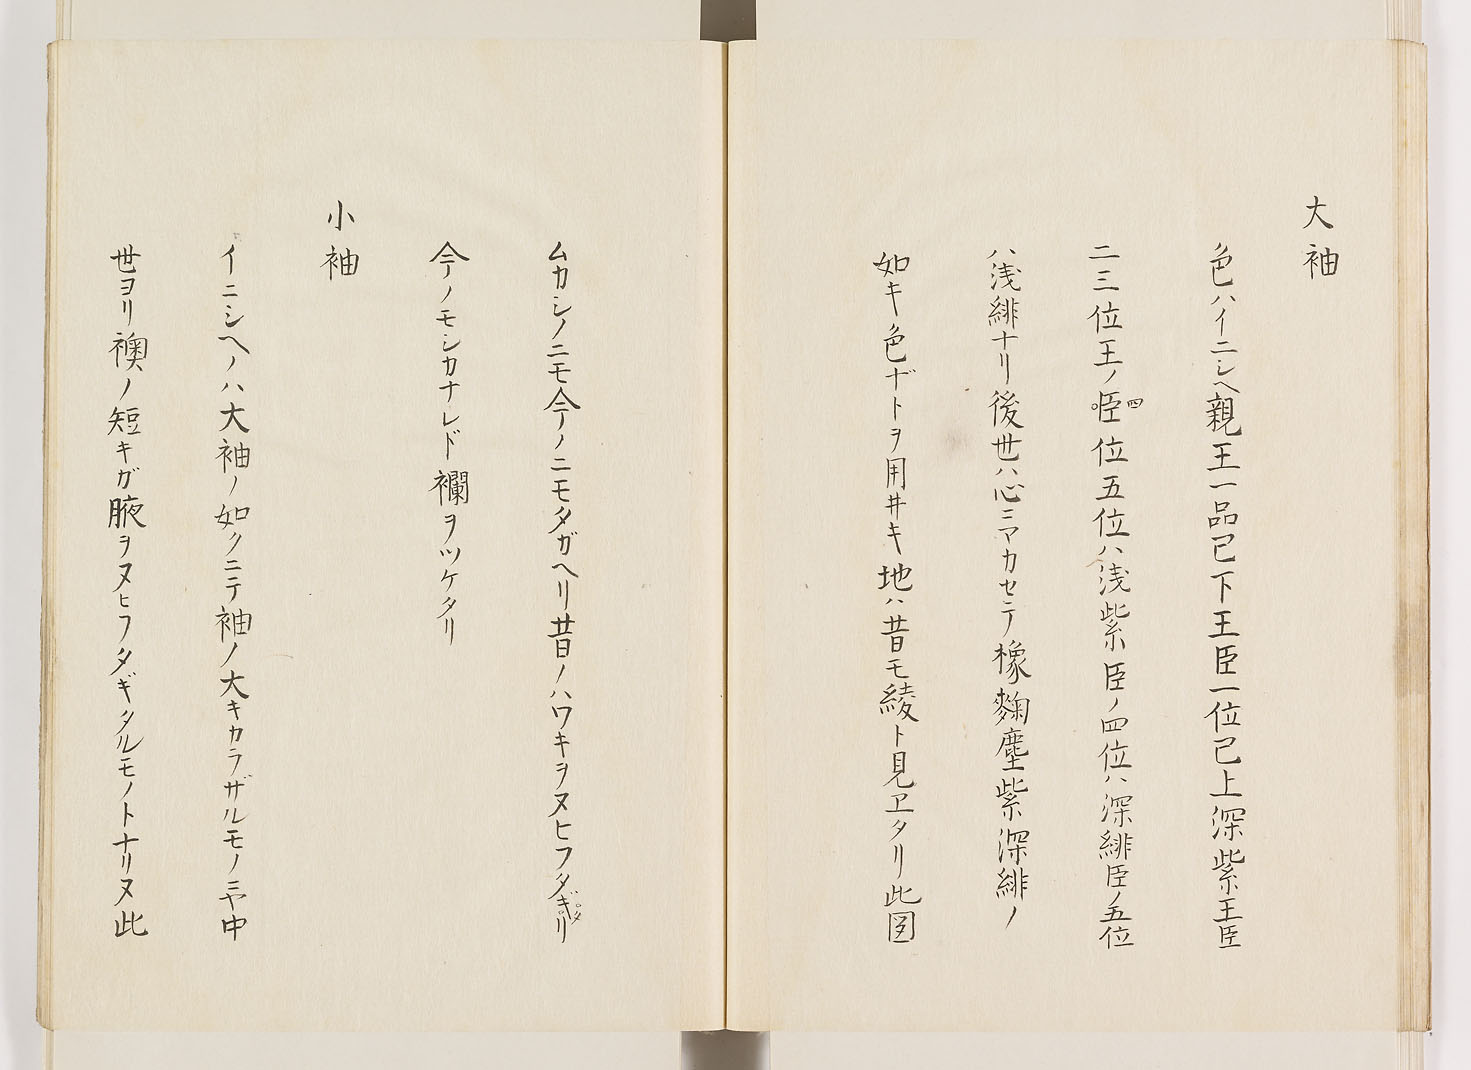 大袖
色ハイニシヘ親王一品已下王臣一位已上深紫王臣
二三位王ノ臣四位五位ハ浅紫臣ノ四位ハ深緋臣ノ五位
ハ浅緋ナリ後世ハ心ニマカセテ橡麴塵紫深緋ノ
如キ色ナドヲ用井キ地ハ昔モ綾ト見ヱタリ此図
ムカシノニモ今ノニモタガヘリ昔ノハワキヲヌヒフタギタリ
今ノモシカナレド襴ヲツケタリ
小袖
イニシヘノハ大袖ノ如クニテ袖ノ大キカラザルモノミヤ中
世ヨリ襖ノ短キガ腋ヲヌヒフタギタルモノトナリヌ此